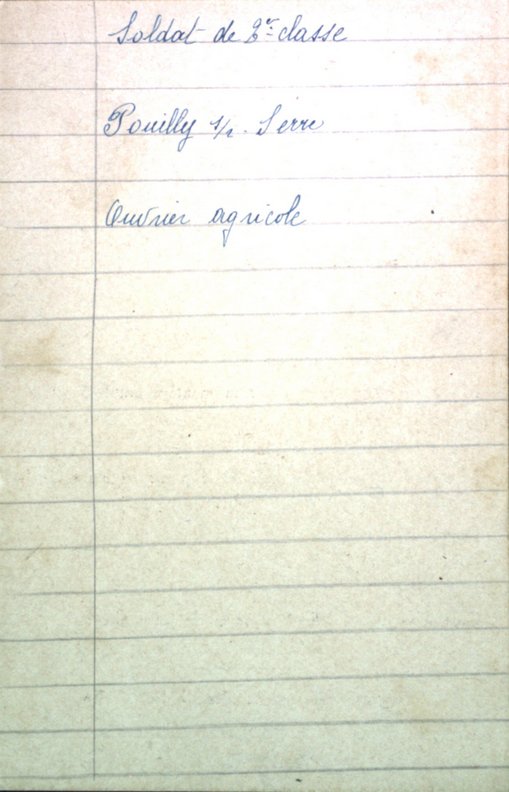 Soldat de 2e classe
Pouilly s/r. Serre
Ouvrier agricole